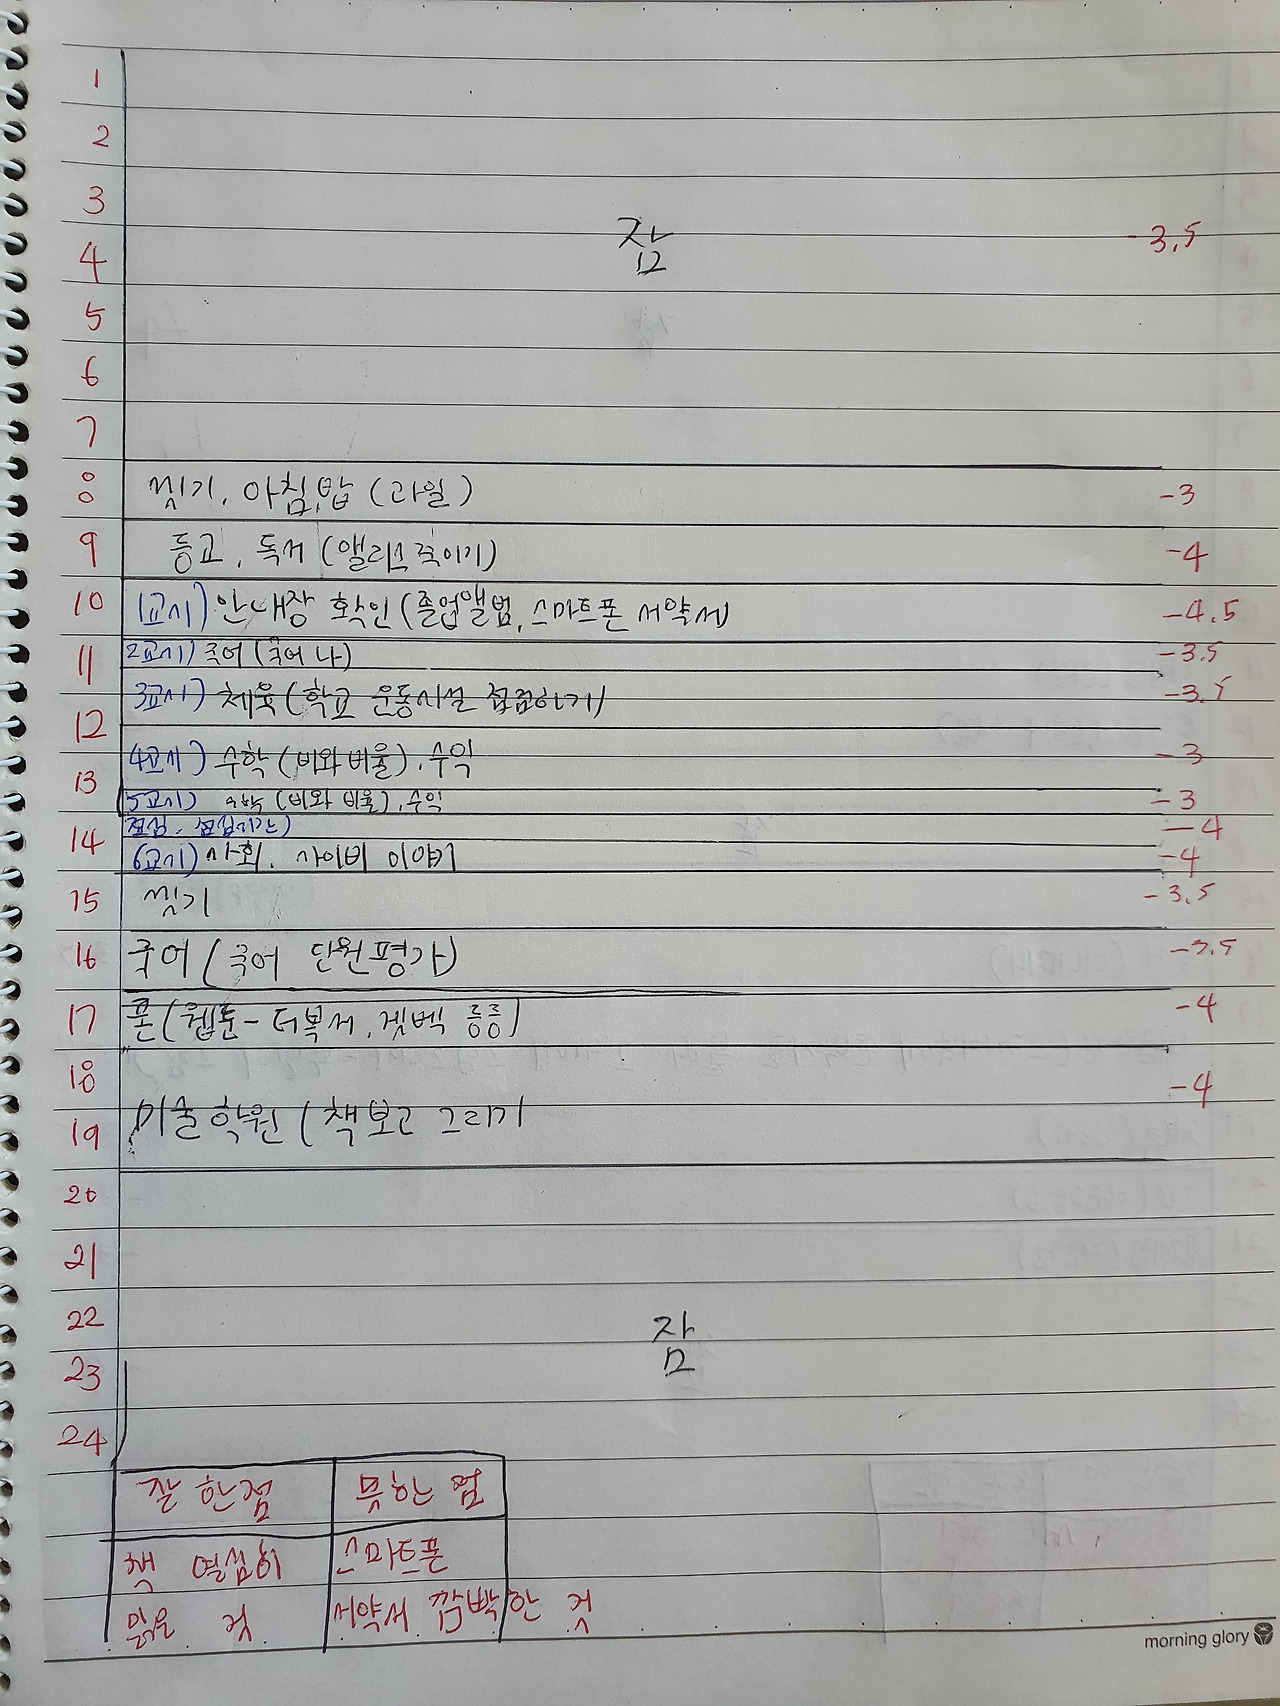 1
2
3
잠 -3.5
4
5
6
7
8 씻기, 아침,밥 (과일) -3
9 등교, 독서 (앨리스 죽이기) -4
10 1교시) 안내장 확인 (졸업앨범, 스마트폰 서약서) -4.5
11 2교시) 국어 (국어 나) -3.5
3교시) 체육 (학교 운동시설 점검하기) -3.5
12
4교시) 수학 (비와 비율), 수익 -3
13
5교시) 수학 (비와 비율), 수익 -3
점심, -4
14 6교시) 사회, 사이비 이야기 -4
15 씻기 -3.5
16 국어 (국어 단원평가) -3.5
17 폰 (웹툰- 더복서, 겟백 등등) -4
18 -4
미술학원 (책보고 그리기
19
20
21
22 잠
23
24
잘 한점 못한 점
책 열심히 스마트폰
읽은 것 서약서 깜빡한 것
morning glory